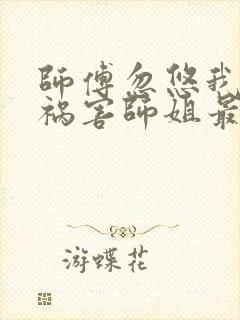 師傅忽悠我
祸害師姐最
游蝶花